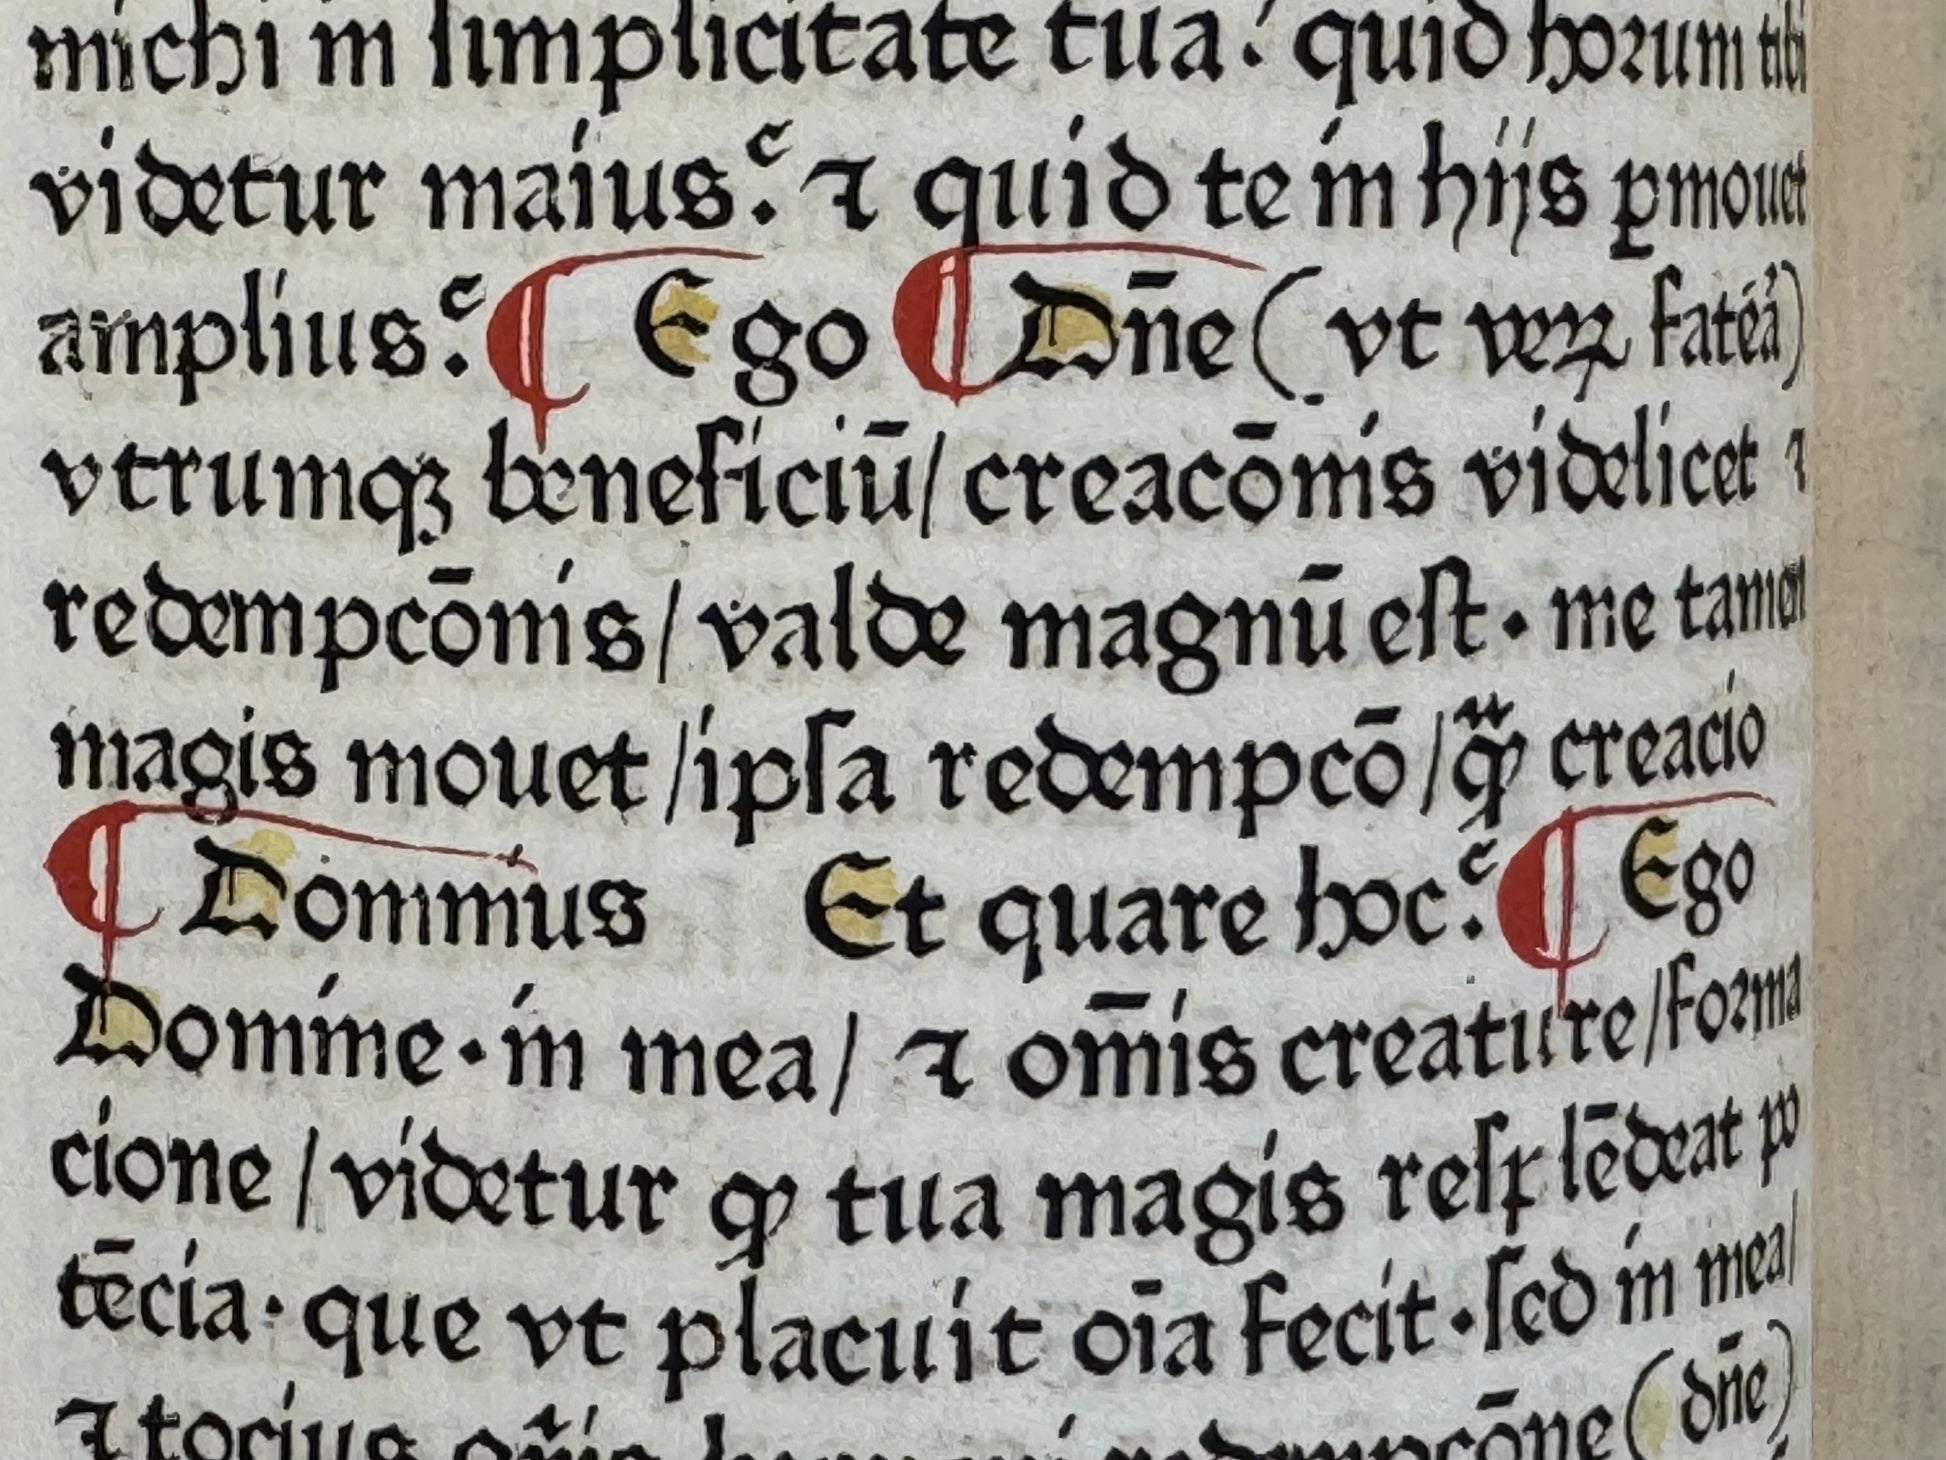 michi in ſimplicitate tua: quid hoꝛum tibi
videtur maius? ⁊ quid te in hijs ꝑmouet
amplius? ¶ Ego ¶ Dn̄e ( vt veꝝ fateá)
vtrumqꝫ beneficiū/ creacōnis videlicet ⁊
redempcōnis/ valde magnū eſt· me tamen
magis mouet /ipſa redempcō/ creacio
¶ Dominus Et quare hoc? ¶ Ego
Domine· in mea/ ⁊ om̄is creature/foꝛma
cione /videtur ꝙ tua magis reſplēdeat po
tēcia· que vt placuit oīa fecit·ſed in mea/
⁊ tocius redempcōne ( dn̄e)